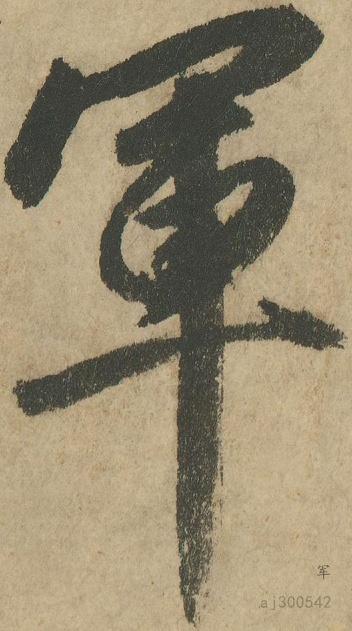 軍
軍
aj300542